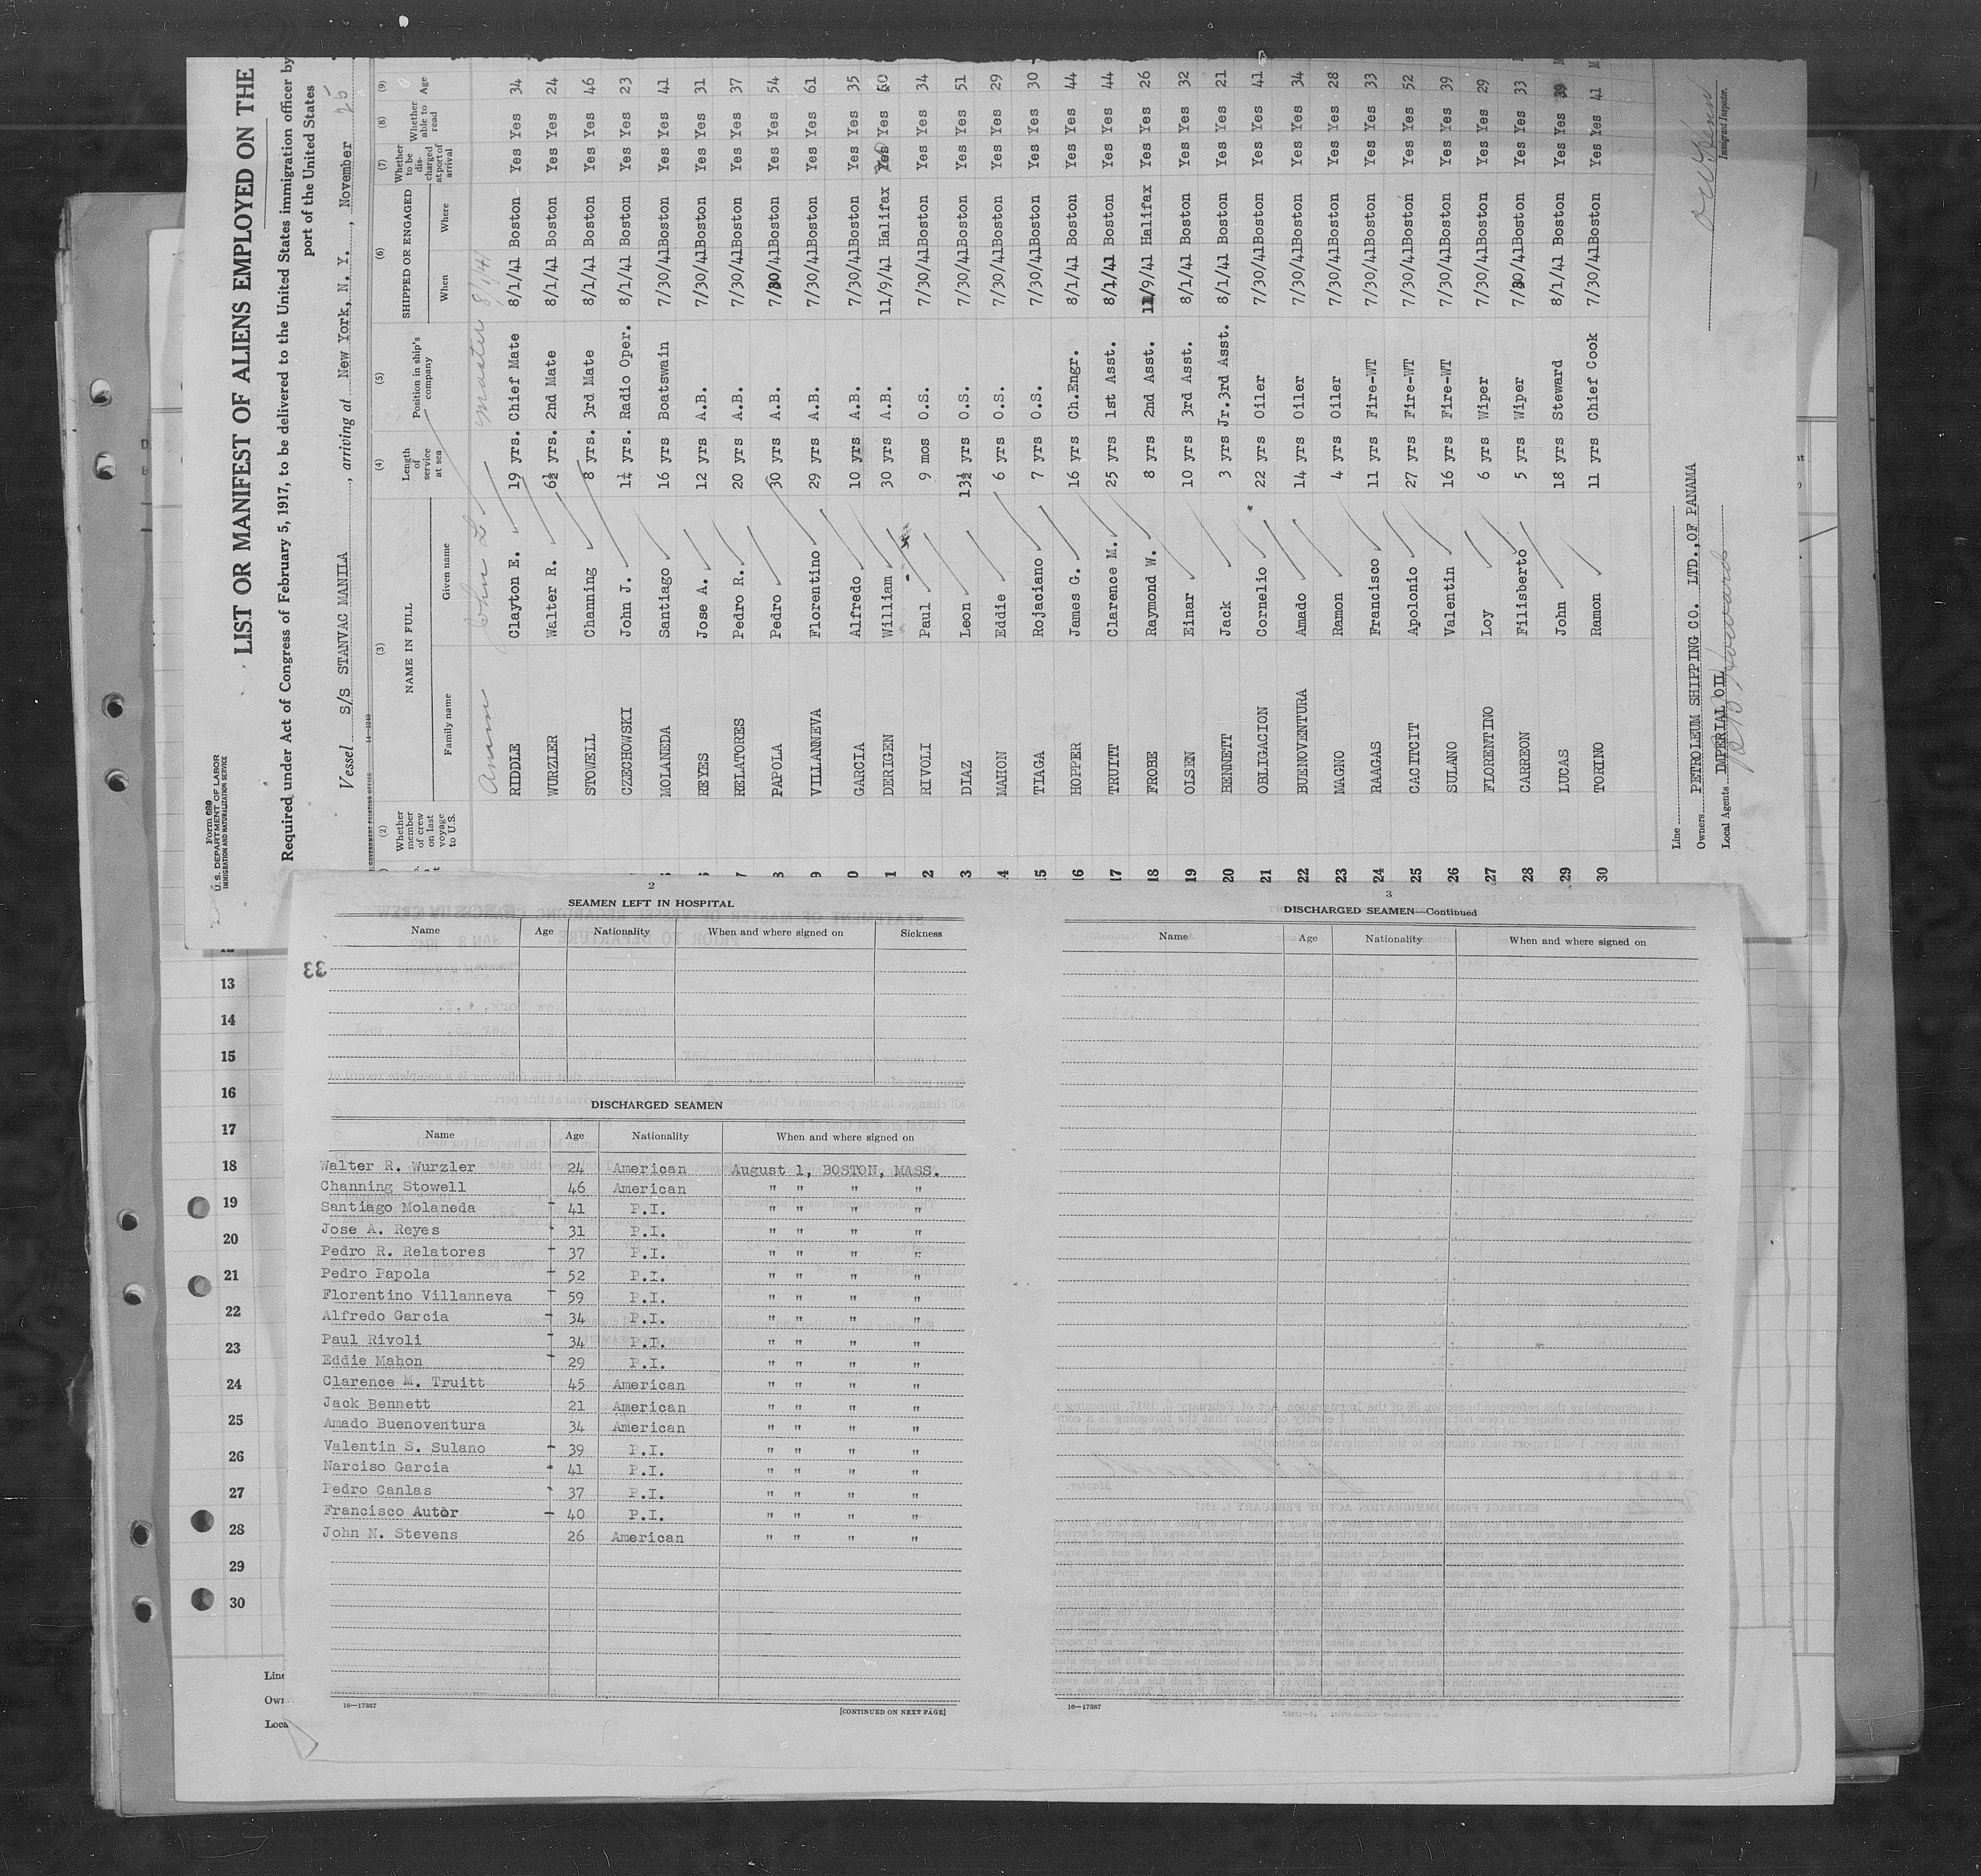 Form 689
U. S. DEPARTMENT OF LABOR
IMMIGRATION AND NATURALIZATION SERVICE
LIST OR MANIFEST OF ALIENS EMPLOYED ON THE
Required under Act of Congress of February 5, 1917, to be delivered to the United States immigration officer by
port of the United States
Vessel S/S STANVAC MANILA, arriving at New York, N. Y., November 25
GOVERNMENT PRINTING OFFICE
(2) (3) (4) (5) (6) (7) (8) (9)
Whether member of crew on last voyage to U.S. NAME IN FULL Length of service at sea Position in ship's company SHIPPED OR ENGAGED Whether to be discharged at port of arrival Whether able to read Age
Family name Given name When Where
Amann John L master 8/1/41
RIDDLE Clayton E. 19 yrs. Chief Mate 8/1/41 Boston Yes Yes 34
WURZLER Walter R. 6½ yrs. 2nd Mate 8/1/41 Boston Yes Yes 24
STOWELL Channing 8 yrs. 3rd Mate 8/1/41 Boston Yes Yes 46
CZECHOWSKI John J. 1¼ yrs. Radio Oper. 8/1/41 Boston Yes Yes 23
MOLANEDA Santiago 16 yrs Boatswain 7/30/41 Boston Yes Yes 41
REYES Jose A. 12 yrs A.B. 7/30/41 Boston Yes Yes 31
RELATORES Pedro R. 20 yrs A.B. 7/30/41 Boston Yes Yes 37
PAPOLA Pedro 30 yrs A.B. 7/30/41 Boston Yes Yes 54
9 VILLANNEVA Florentino 29 yrs A.B. 7/30/41 Boston Yes Yes 61
0 GARCIA Alfredo 10 yrs A.B. 7/30/41 Boston Yes Yes 35
1 DERIGEN William 30 yrs A.B. 11/9/41 Halifax Yes Yes 50
2 RIVOLI Paul 9 mos O.S. 7/30/41 Boston Yes Yes 34
3 DIAZ Leon 13½ yrs O.S. 7/30/41 Boston Yes Yes 51
4 MAHON Eddie 6 yrs O.S. 7/30/41 Boston Yes Yes 29
15 TIAGA Rojaciano 7 yrs O.S. 7/30/41 Boston Yes Yes 30
16 HOPPER James G. 16 yrs Ch.Engr. 8/1/41 Boston Yes Yes 44
17 TRUITT Clarence M. 25 yrs 1st Asst. 8/1/41 Boston Yes Yes 44
18 FROBE Raymond W. 8 yrs 2nd Asst. 11/9/41 Halifax Yes Yes 26
19 OLSEN Einar 10 yrs 3rd Asst. 8/1/41 Boston Yes Yes 32
20 BENNETT Jack 3 yrs Jr.3rd Asst. 8/1/41 Boston Yes Yes 21
21 OBLIGACION Cornelio 22 yrs Oiler 7/30/41 Boston Yes Yes 41
22 BUENOVENTURA Amado 14 yrs Oiler 7/30/41 Boston Yes Yes 34
23 MAGNO Ramon 4 yrs Oiler 7/30/41 Boston Yes Yes 28
24 RAAGAS Francisco 11 yrs Fire-WT 7/30/41 Boston Yes Yes 33
25 CACITCIT Apolonio 27 yrs Fire-WT 7/30/41 Boston Yes Yes 52
26 SULANO Valentin 16 yrs Fire-WT 7/30/41 Boston Yes Yes 39
27 FLORENTINO Loy 6 yrs Wiper 7/30/41 Boston Yes Yes 29
28 CARREON Filisberto 5 yrs Wiper 7/30/41 Boston Yes Yes 33
29 LUCAS John 18 yrs Steward 8/1/41 Boston Yes Yes 39
30 TORINO Ramon 11 yrs Chief Cook 7/30/41 Boston Yes Yes 41
Line
Owners PETROLEUM SHIPPING CO. LTD., OF PANAMA
Local Agents IMPERIAL OIL
Immigrant Inspector.
2
SEAMEN LEFT IN HOSPITAL
Name Age Nationality When and where signed on Sickness
33
DISCHARGED SEAMEN
Name Age Nationality When and where signed on
Walter R. Wurzler 24 American August 1, BOSTON, MASS.
Channing Stowell 46 American " " " "
Santiago Molaneda 41 P.I. " " " "
Jose A. Reyes 31 P.I. " " " "
Pedro R. Relatores 37 P.I. " " " "
Pedro Papola 52 P.I. " " " "
Florentino Villanneva 59 P.I. " " " "
Alfredo Garcia 34 P.I. " " " "
Paul Rivoli 34 P.I. " " " "
Eddie Mahon 29 P.I. " " " "
Clarence M. Truitt 45 American " " " "
Jack Bennett 21 American " " " "
Amado Buenoventura 34 American " " " "
Valentin S. Sulano 39 P.I. " " " "
Narciso Garcia 41 P.I. " " " "
Pedro Canlas 37 P.I. " " " "
Francisco Autor 40 P.I. " " " "
John N. Stevens 26 American " " " "
16—17387
[CONTINUED ON NEXT PAGE]
3
DISCHARGED SEAMEN—Continued
Name Age Nationality When and where signed on
16—17387
13
14
15
16
17
18
19
20
21
22
23
24
25
26
27
28
29
30
Line